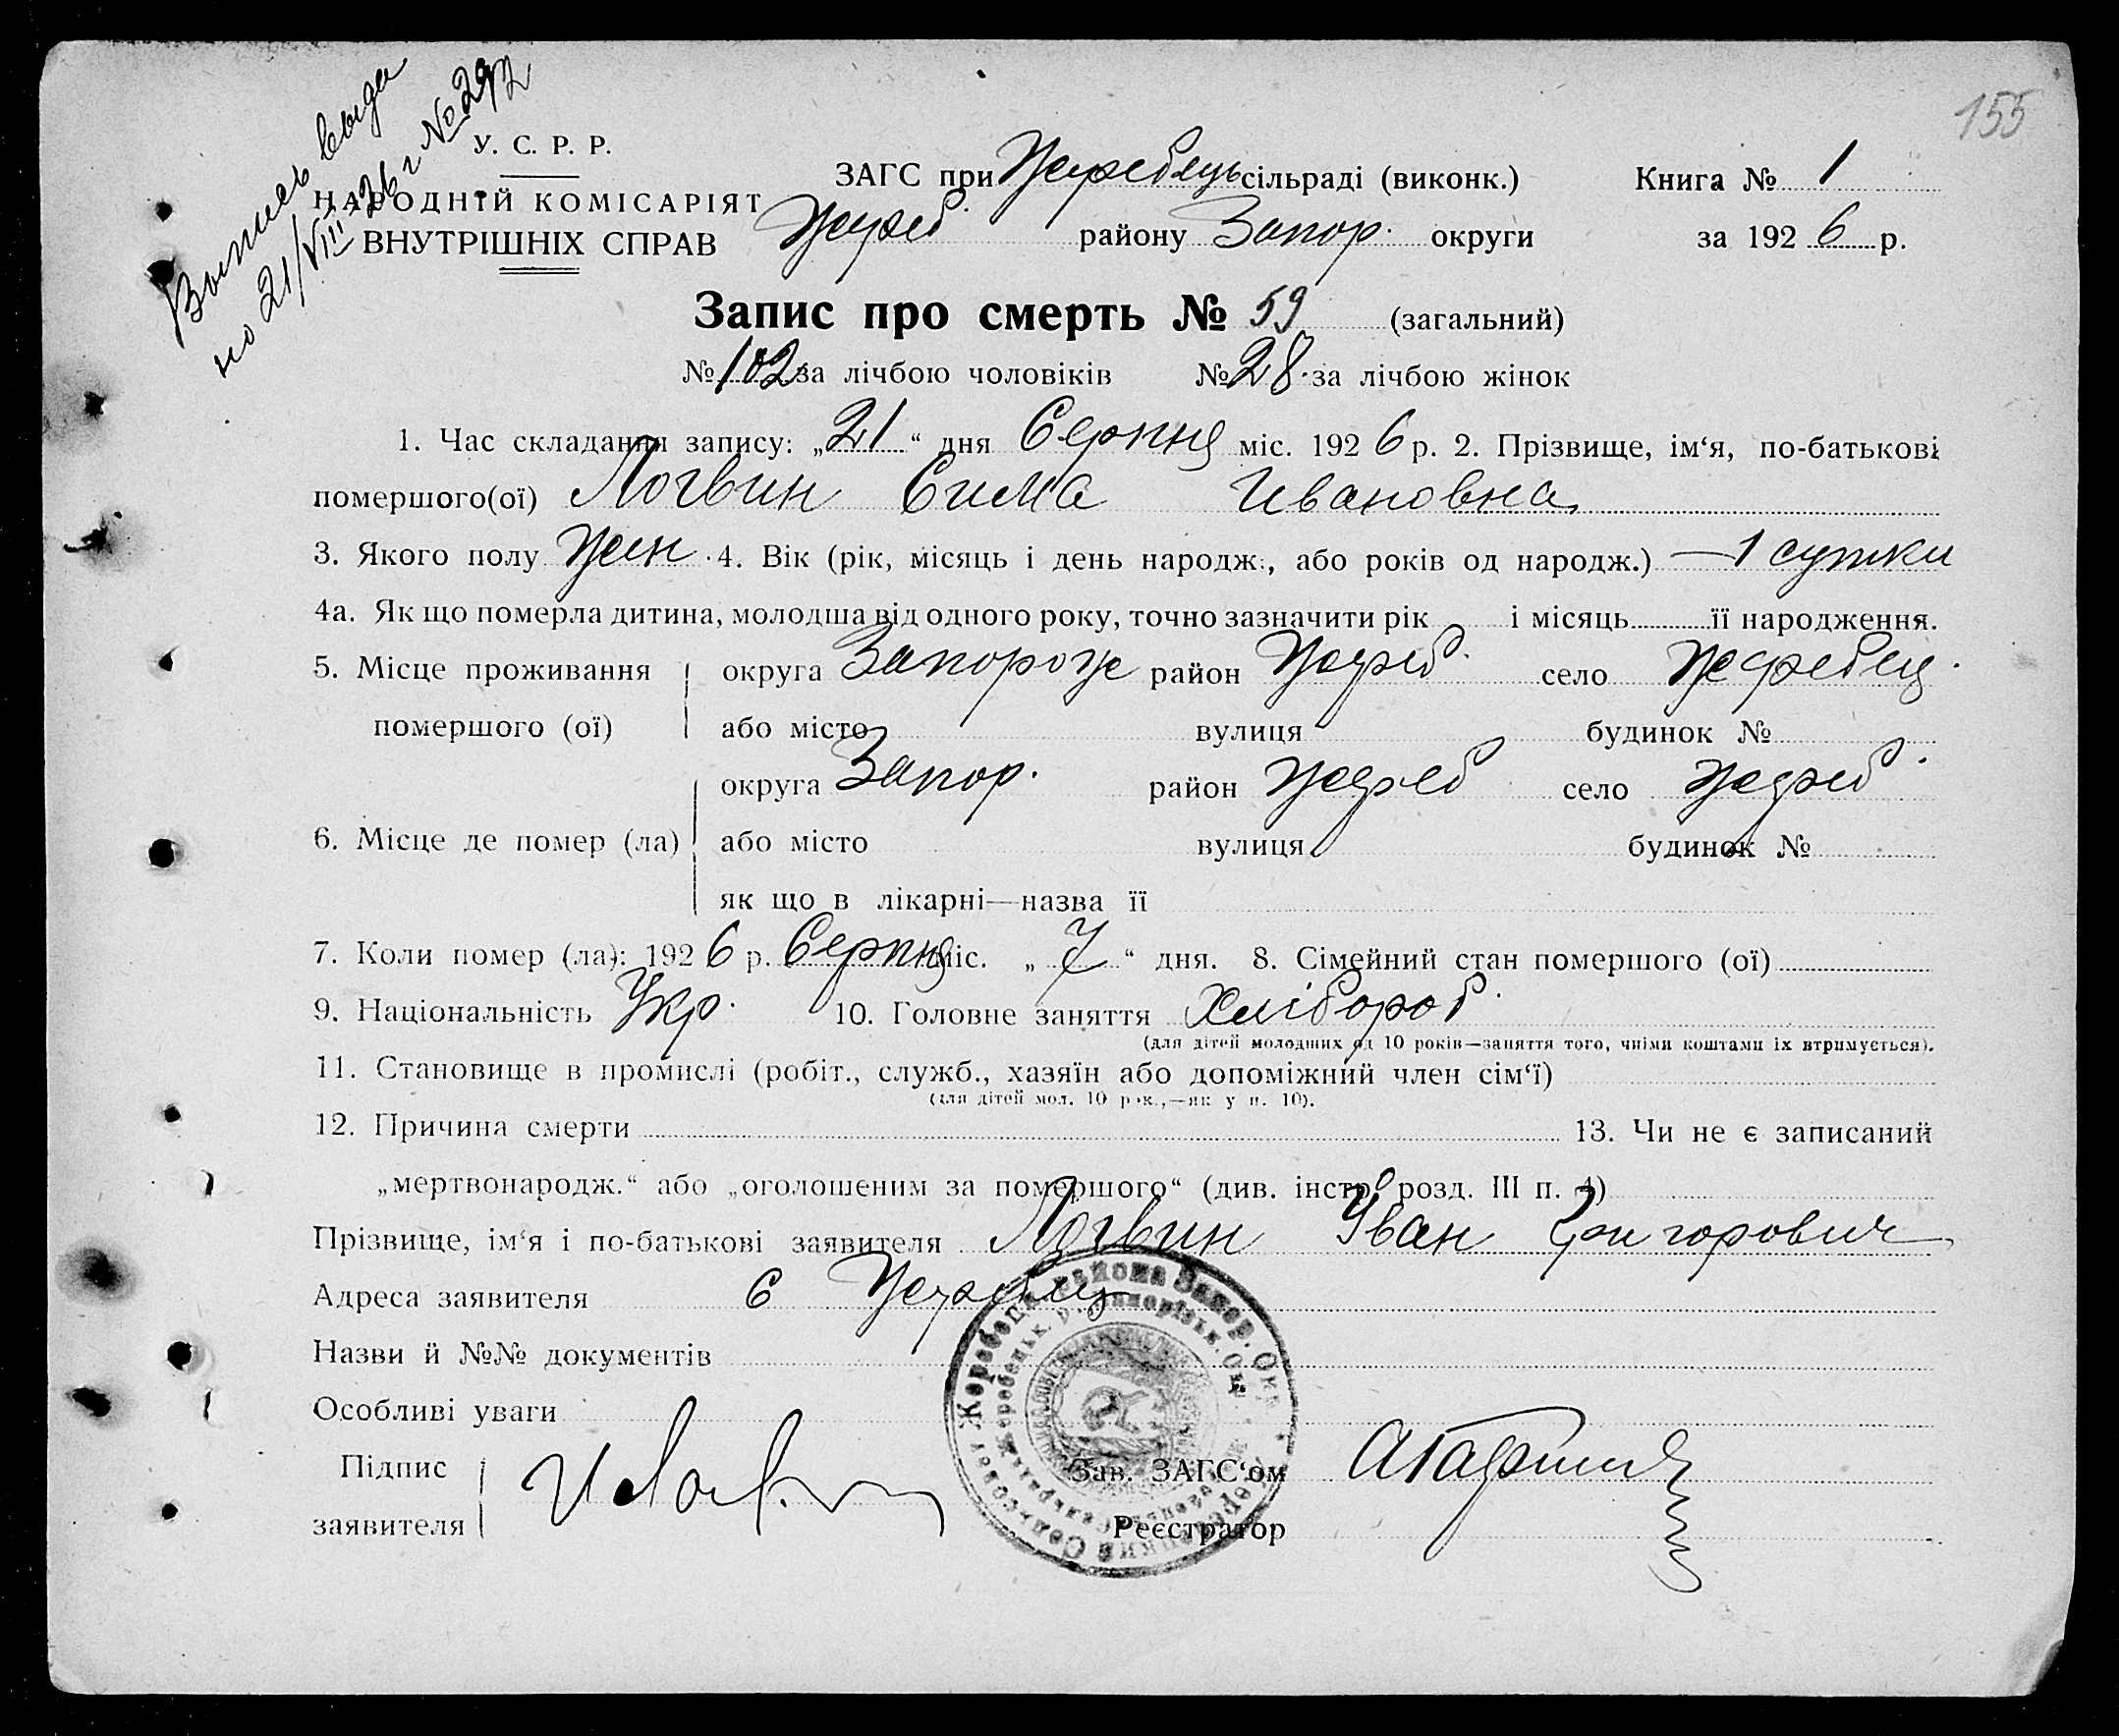 155
Выпись выда
но 21/VIII 26 г № 292
У. С. Р. Р.
НАРОДНІЙ КОМІСАРІЯТ
ВНУТРІШНІХ СПРАВ
ЗАГС при Жеребець сільраді (виконк.) Книга № 1
Жереб району Запор. округи за 1926 р.
Запис про смерть № 59 (загальний)
№ 102 за лічбою чоловіків № 28 за лічбою жінок
1. Час складання запису: „21“ дня Серпня міс. 1926 р. 2. Прізвище, ім‘я, по-батькові
помершого(ої) Логвин Сима Ивановна
3. Якого полу Жен. 4. Вік (рік, місяць і день народж., або років од народж.) — 1 сутки
4а. Як що померла дитина, молодша від одного року, точно зазначити рік і місяць її народження.
5. Місце проживання округа Запорож район Жереб. село Жеребец.
помершого (ої) або місто вулиця будинок №
округа Запор. район Жереб село Жереб.
6. Місце де помер (ла) або місто вулиця будинок №
як що в лікарні—назва її
7. Коли помер (ла): 1926 р. Серпня міс. „7“ дня. 8. Сімейний стан помершого (ої)
9. Національність Укр. 10. Головне заняття Хлібороб.
(для дітей молодших од 10 років—заняття того, чиїми коштами їх втримується).
11. Становище в промислі (робіт., служб., хазяїн або допоміжний член сім‘ї)
(для дітей мол. 10 рок.,—як у п. 10).
12. Причина смерти 13. Чи не є записаний
„мертвонародж.“ або „оголошеним за помершого“ (див. інстр. розд. III п. 4)
Прізвище, ім‘я і по-батькові заявителя Логвин Иван Григорович
Адреса заявителя с Жеребец
Назви й №№ документів
Особливі уваги
Підпис
заявителя
Зав. ЗАГС‘ом
Реєстратор